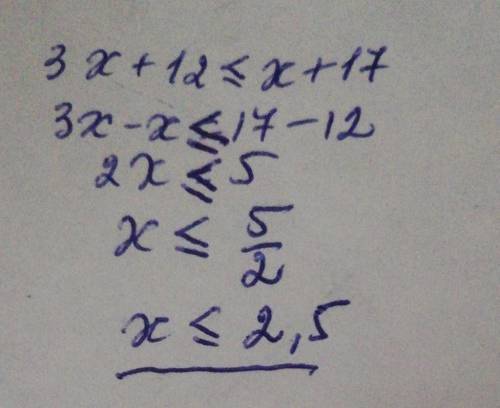 3x+12≤x+17
3x-x≤17-12
2x≤5
x≤5/2
x≤2,5